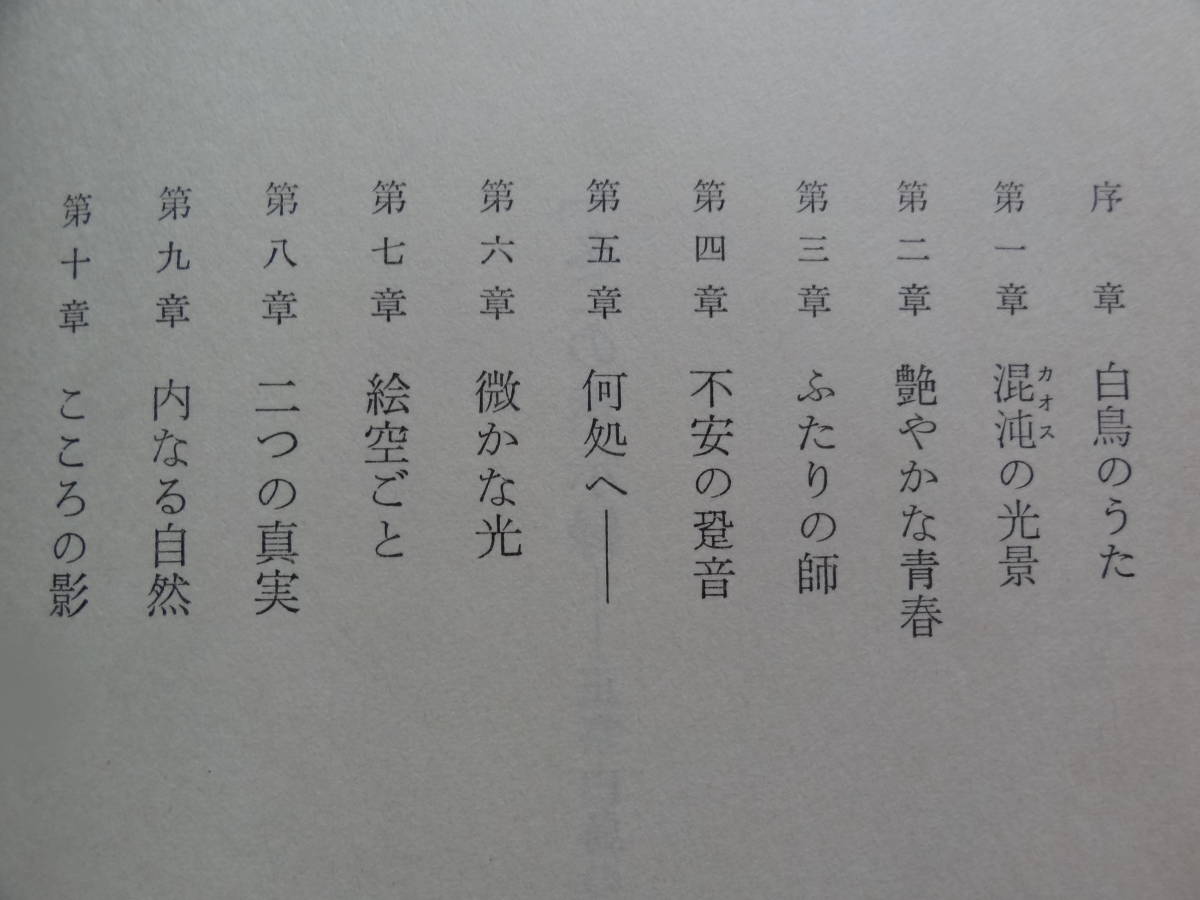 序章 白鳥のうた
第一章 混沌の光景
カオス
第二章 艶やかな青春
第三章 ふたりの師
第四章 不安の跫音
第五章 何処へ――
第六章 微かな光
第七章 絵空ごと
第八章 二つの真実
第九章 内なる自然
第十章 こころの影